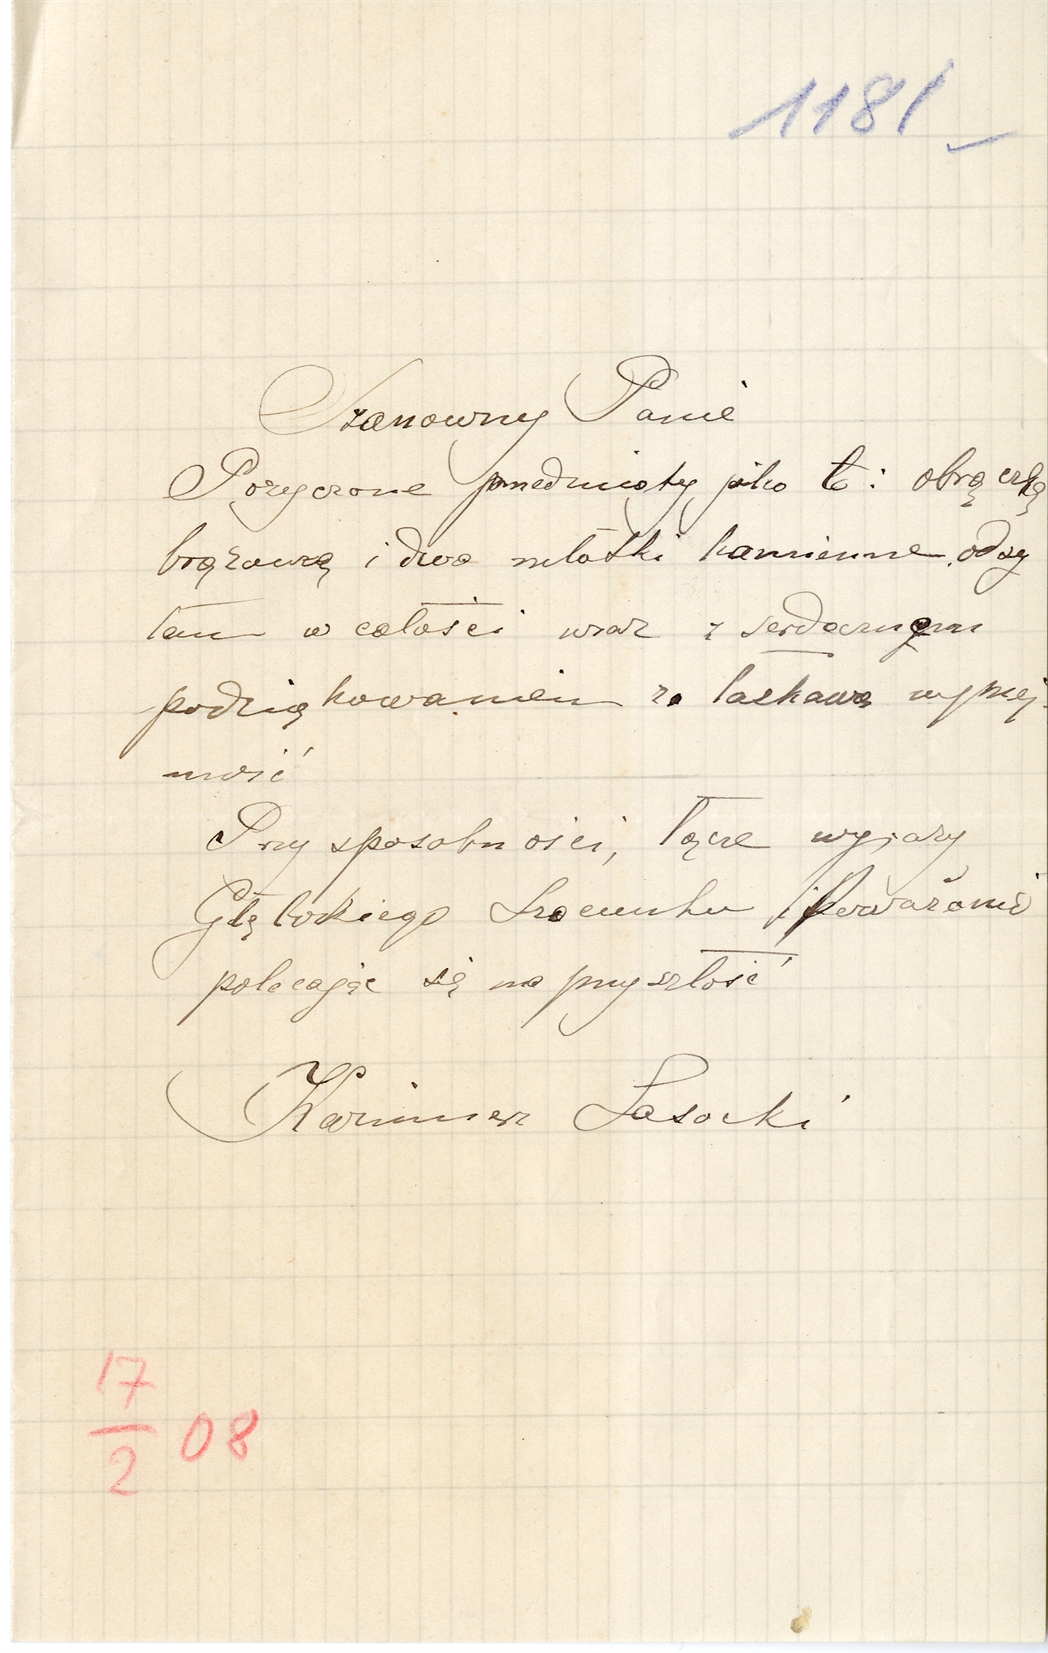 1181
Szanowny Panie
Pożyczone przedmioty jako to: obrączkę
brązową i dwa młotki kamienne odsy
łam w całości wraz z serdecznym
podziękowaniem za łaskawą uprzej-
mość
Przy sposobności, łączę wyrazy
Głębokiego Szacunku i Poważanie
polecając się na przyszłość
Kazimierz Lasocki
17
2 08